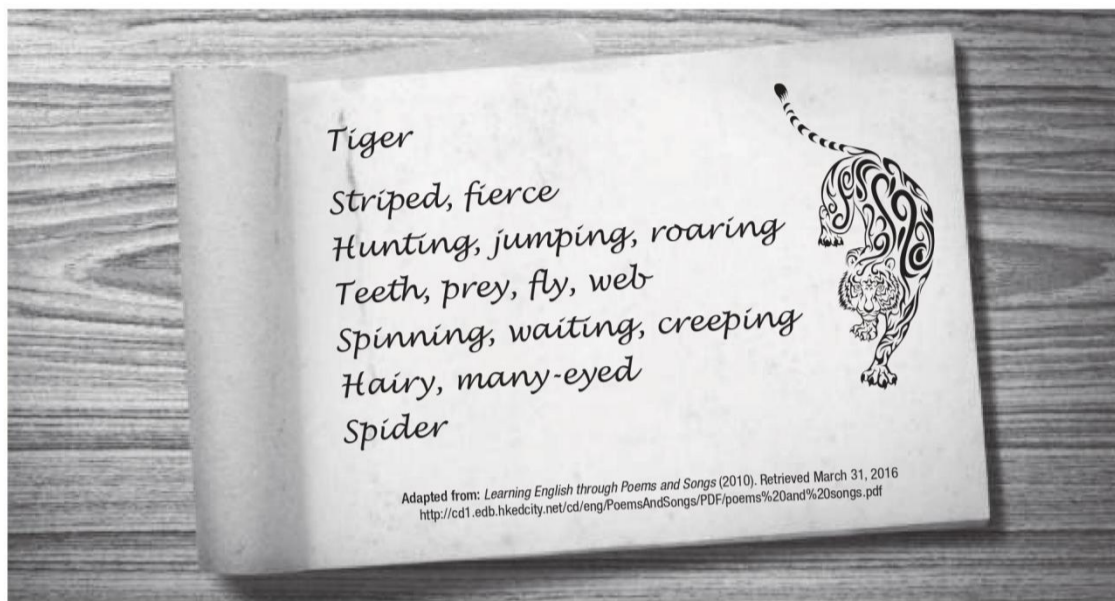 Tiger
Striped, fierce
Hunting, jumping, roaring
Teeth, prey, fly, web
Spinning, waiting, creeping
Hairy, many-eyed
Spider
Adapted from: Learning English through Poems and Songs (2010). Retrieved March 31, 2016
http://cd1.edb.hkedcity.net/cd/eng/PoemsAndSongs/PDF/poems%20and%20songs.pdf